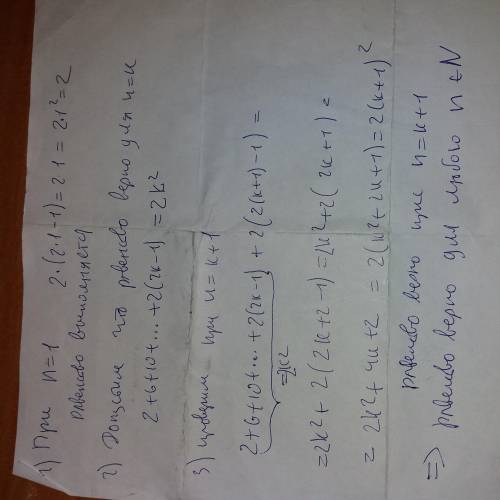 1) При n=1 2·(2·1-1)=2·1=2·1²=2
равенство выполняется
2) Допустим что равенство верно для n=k
2+6+10+...+2(2k-1) =2k²
3) проверим при n=k+1
2+6+10+...+2(2k-1)+2(2(k+1)-1)=
=2k²
=2k²+2(2k+2-1)=2k²+2(2k+1)=
=2k²+4k+2=2(k²+2k+1)=2(k+1)²
равенство верно при n=k+1
⇒ равенство верно для любого n∈N